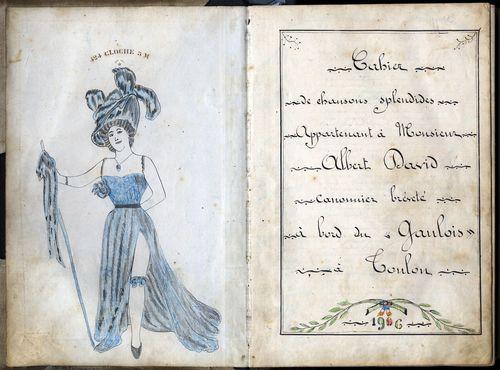 424 CLOCHE 3 M
Cahier
de chansons splendides
Appartenant à Monsieur
Albert David
canonnier bréveté
à bord du « Gaulois »
à Toulon
1906